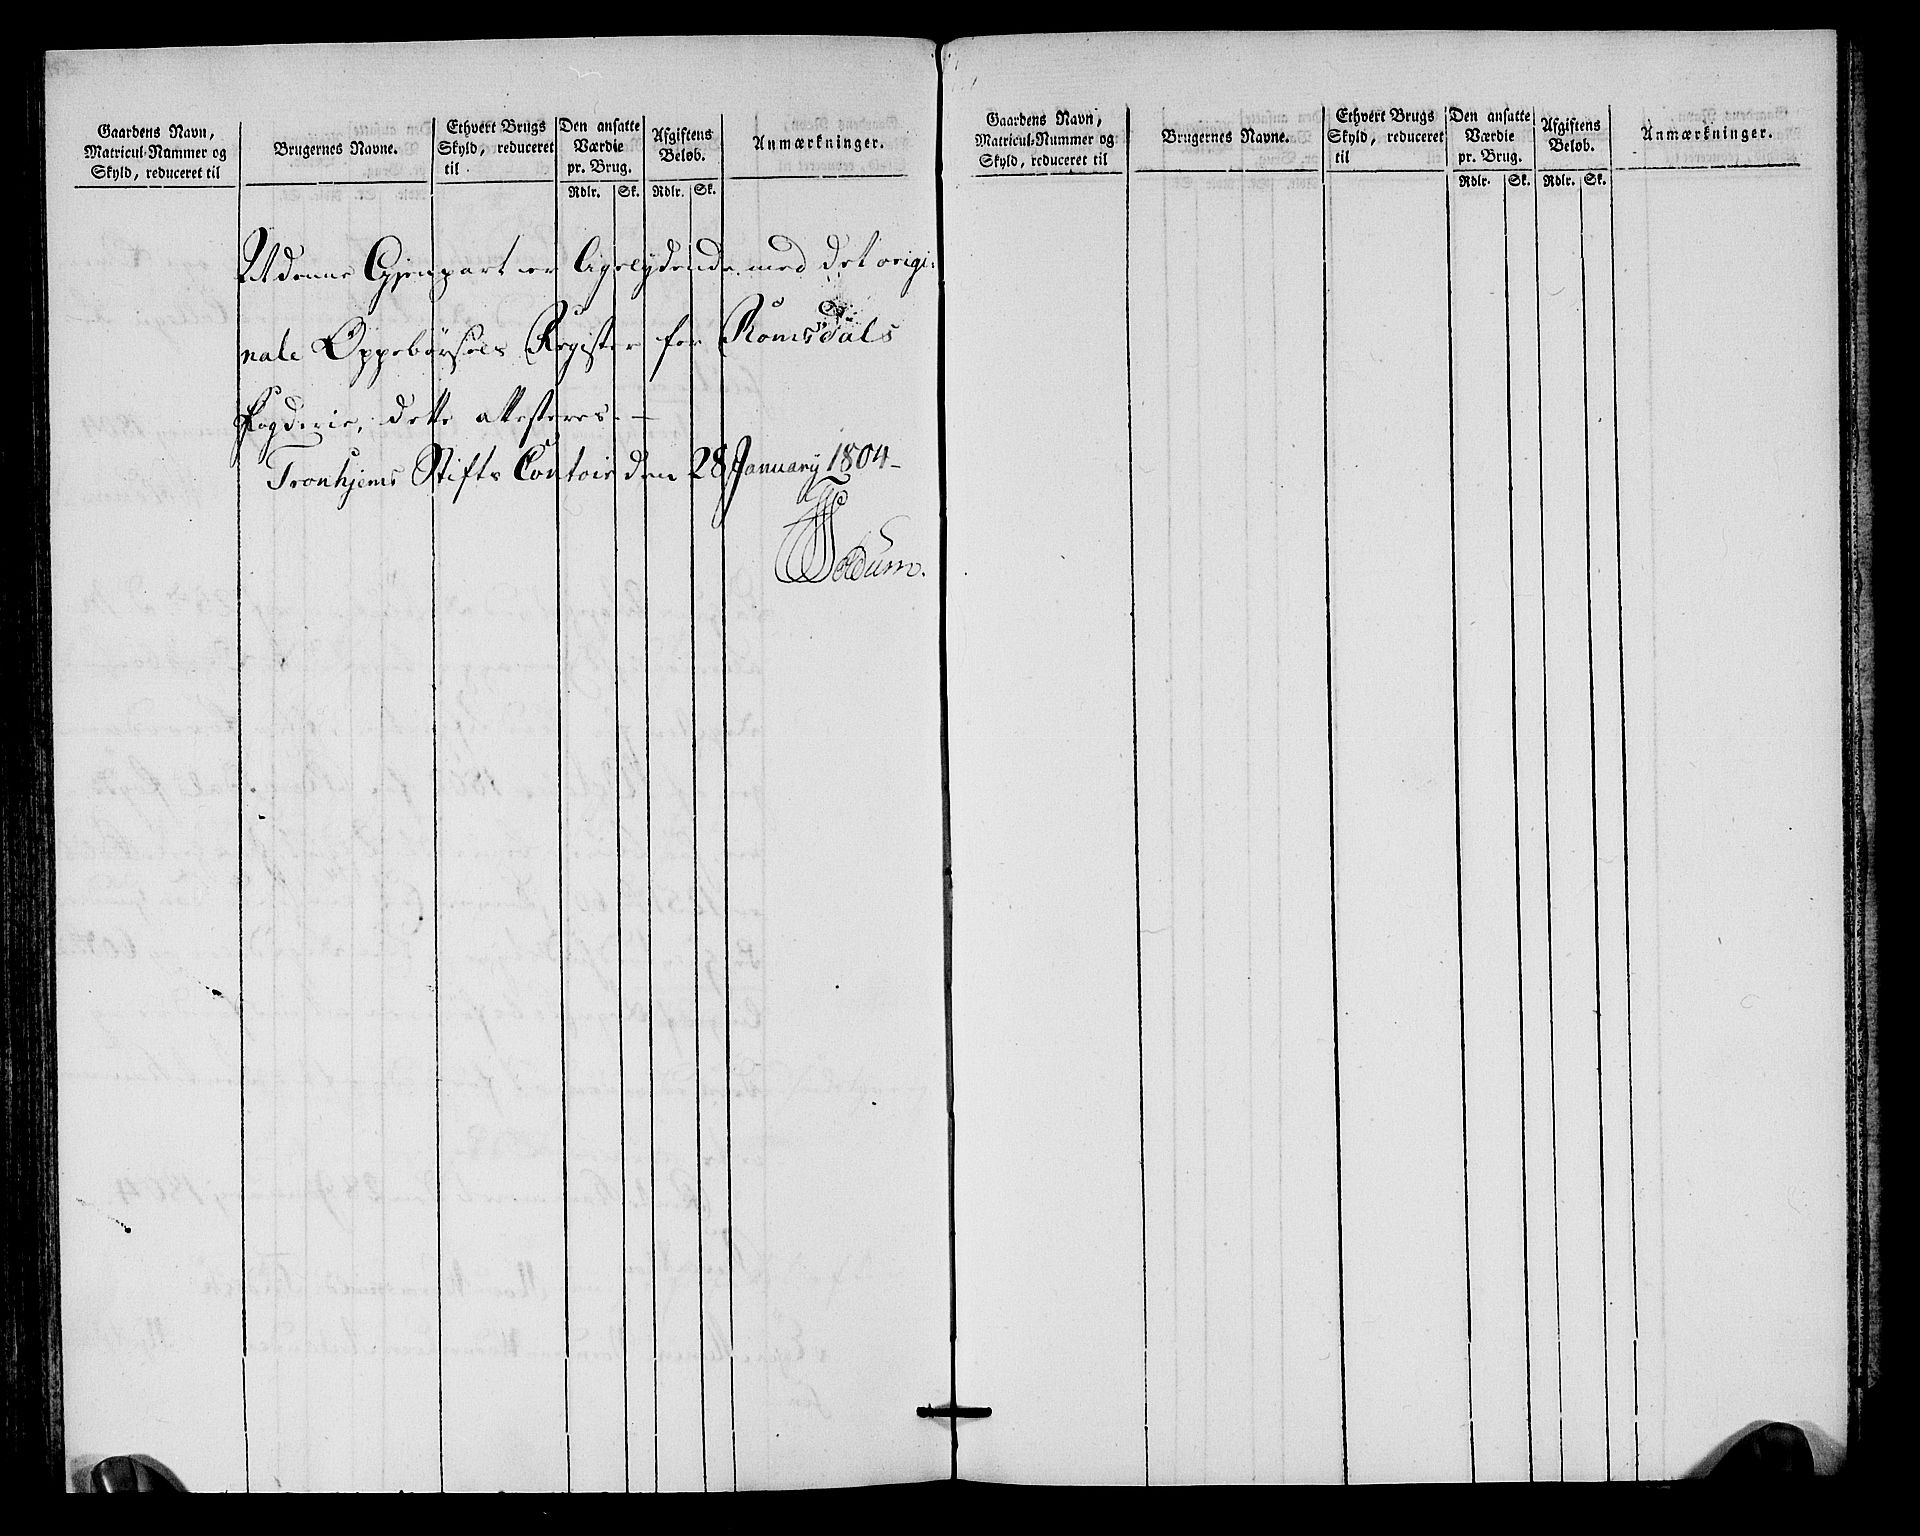 Gaardens Navn,
Matricul-Nummer og
Skyld, reduceret til
Brugernes Navne.
Ethvert Brugs
Skyld, reduceret
til
Den ansatte
Værdie
pr. Brug.
Rdlr. Sk.
Afgiftens
Beløb.
Rdlr. Sk.
Anmærkninger.
At denne Gjenpart er ligelydende med det origi-
nale Oppebørsels Register for Romsdals
Fogderie, dette attesteres.—
Tronhjems Stifts Contoir den 28 January 1804—
Gaardens Navn,
Matricul-Nummer og
Skyld, reduceret til
Brugernes Navne.
Ethvert Brugs
Skyld, reduceret
til
Den ansatte
Værdie
pr. Brug.
Rdlr. Sk.
Afgiftens
Beløb.
Rdlr. Sk.
Anmærkninger.